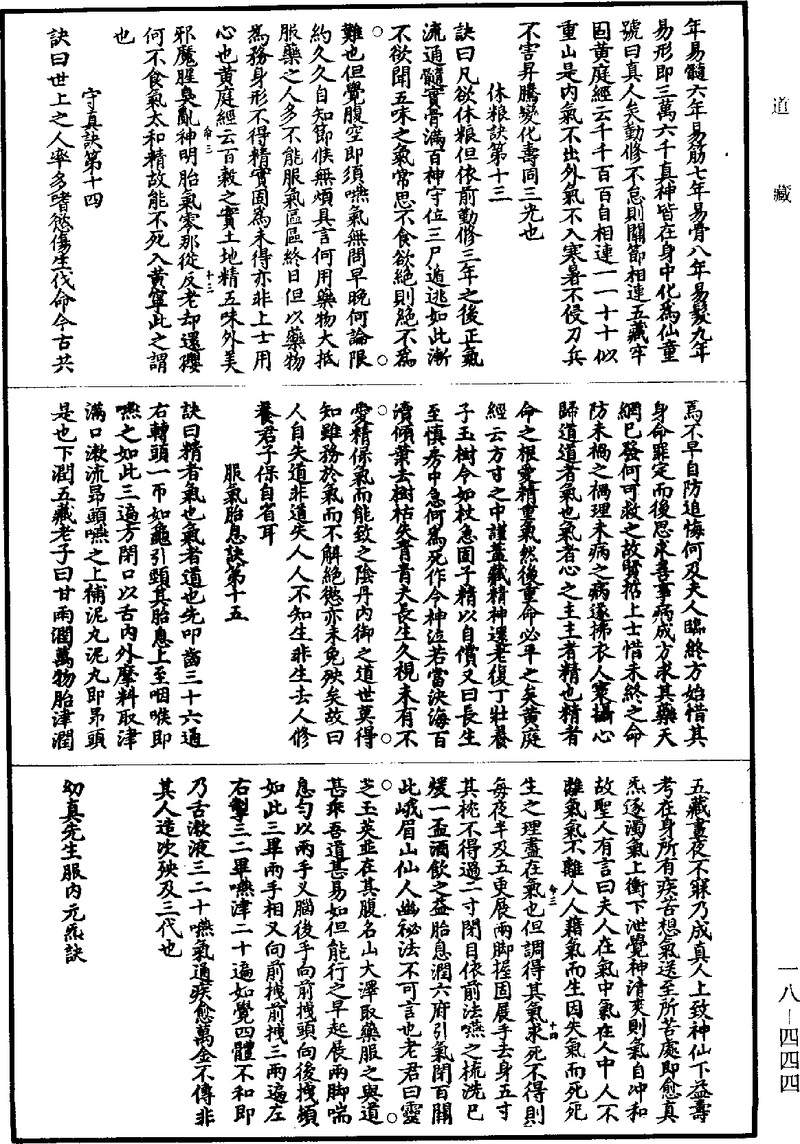 道藏
年易髓六年易筋七年易骨八年易髮九年
易形即三萬六千真神皆在身中化爲仙童
號曰真人矣勤修不怠則關節相連五藏牢
固黃庭經云千千百百自相連一一十十似
重山是内氣不出外氣不入寒暑不侵刀兵
不害昇騰變化壽同三光也
休粮訣第十三
訣曰凡欲休粮但依前勤修三年之後正氣
流通髓實骨滿百神守位三尸遁逃如此漸
不欲聞五味之氣常思不食欲絕則絕不爲
難也但覺腹空即須嚥氣無問早晚何論限
約久久自知節候無煩具言何用藥物大抵
服藥之人多不能服氣區區終日但以藥物
爲務身形不得精實固爲未得亦非上士用
心也黃庭經云百穀之實土地精五味外美
邪魔腥臭亂神明胎氣零那從反老却還孾
命三
十三
何不食氣太和精故能不死入黃寧此之謂
也
守真訣第十四
訣曰世上之人率多嗜慾傷生伐命今古共
焉不早自防追悔何及夫人臨終方始惜其
身命罪定而後思求善事病成方求其藥天
網已發何可救之故賢哲上士惜未終之命
防未禍之禍理未病之病遂拂衣人寰攝心
歸道道者氣也氣者心之主主者精也精者
命之根愛精重氣然後重命必平之矣黃庭
經云方寸之中謹蓋藏精神還老復丁壯養
子玉樹令如杖急固子精以自償又曰長生
至慎房中急何爲死作令神泣若當決海百
瀆傾葉去樹枯失青青夫長生久視未有不
愛精保氣而能致之陰丹内御之道世莫得
知雖務於氣而不解絕慾亦未免殃矣故曰
人自失道非道失人人不知生非生去人修
養君子保自省耳
服氣胎息訣第十五
訣曰精者氣也氣者道也先叩齒三十六通
右轉頭一帀如龜引頸其胎息上至咽喉即
嚥之如此三遍方閉口以舌内外摩料取津
滿口漱流昂頭嚥之上補泥丸泥丸即昂頭
是也下潤五藏老子曰甘雨潤萬物胎津潤
五藏晝夜不寐乃成真人上致神仙下益壽
考在身所有疾苦想氣送至所苦處即愈真
炁逐濁氣上衝下泄覺神清爽則氣自冲和
故聖人有言曰夫人在氣中氣在人中人不
離氣氣不離人人藉氣而生因失氣而死死
命三
十四
生之理盡在氣也但調得其氣求死不得則
每夜半及五更展兩脚握固展手去身五寸
其枕不得過二寸閉目依前法嚥之梳洗已
煖一盃酒飲之益胎息潤六府引氣閉百關
此峨眉山仙人幽祕法不可言也老君曰靈
芝玉英並在其腹名山大澤取藥服之與道
甚乖吾道甚易如但能行之早起展兩脚喘
息勻以兩手叉腦後手向前拽頭向後拽頻
如此三畢兩手相叉向前拽前拽三兩遍左
右掣三二畢嚥津二十遍如覺四體不和即
乃舌漱液三二十嚥氣通疾愈萬金不傳非
其人造次殃及三代也
幼真先生服内元炁訣
一八—四四四